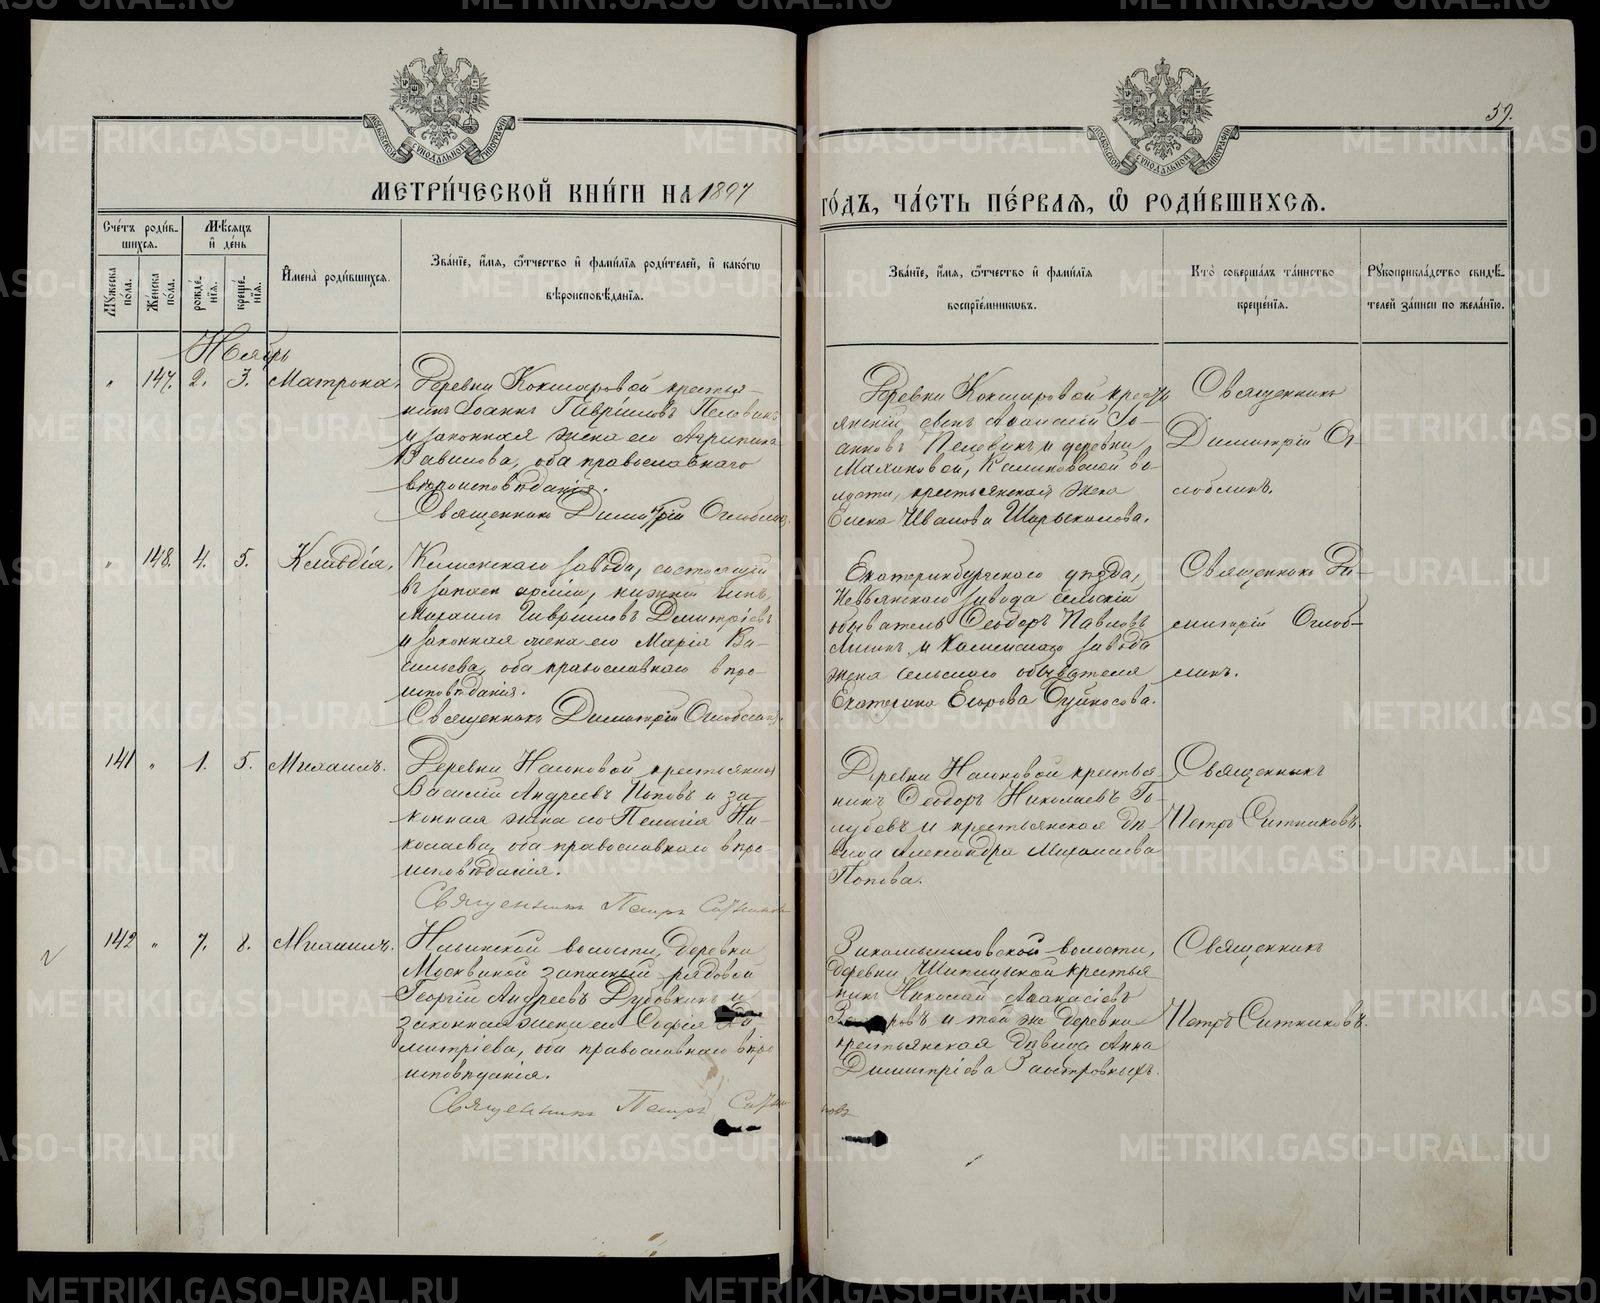 59.
МОСКОВСКОЙ СѴНОДАЛЬНОЙ ТИПОГРАФІИ
МОСКОВСКОЙ СѴНОДАЛЬНОЙ ТИПОГРАФІИ
МЕТРИ́ЧЕСКОЙ КНИ́ГИ НА 1897
ГО́ДЪ, ЧА́СТЬ ПЕ́РВАЯ, Ѽ РОДИ́ВШИХСЯ.
Сче́тъ роди́в-
шихся.
Мꙋжеска по́ла.
Же́нска по́ла.
Мѣ́сяцъ
и҆ де́нь
рожде́-
нїя.
креще́-
нїя.
И҆мена̀ роди́вшихся.
Зва́нїе, и҆́мя, ѻ҆́тчество и҆ фами́лїя роди́телей, и҆ како́гѡ
вѣроисповѣ́данїя.
Зва́нїе, и҆́мя, ѻ҆́тчество и҆ фами́лїя
воспрїе́мникωвъ.
Кто̀ соверша́лъ та́инство
креще́нїя.
Рꙋкоприкла́дство свидѣ́-
телей за́писи по жела́нїю.
Ноябрь
" 147. 2. 3. Матрона.
Деревни Кокшаровой крестья-
нинъ Іоаннъ Гавріиловъ Пеловинъ
и законная жена его Агрипина
Вавилова, оба православнаго
вѣроисповѣданія.
Священникъ Димитрій Оглоблинъ.
Деревни Кокшаровой кресть
янскій сынъ Афанасій Іо-
анновъ Пеловинъ и деревни
волости, крестьянская жена
Елена Иванова
Священникъ
Димитрій Ог-
лоблинъ.
" 148. 4. 5. Клавдія.
Каменскаго завода, состоящій
въ запасѣ арміи, нижній чинъ,
Михаилъ Гавріиловъ Димитріевъ
и законная жена его Марія Ва-
сильева, оба православнаго вѣро-
исповѣданія.
Священникъ Димитрій Оглоблинъ.
Екатеринбургскаго уѣзда,
Невьянскаго завода сельскій
обыватель Ѳеодоръ Павловъ
и Каменскаго завода
жена сельскаго обывателя
Екатерина Егорова
Священникъ Ди-
митрій Оглоб-
линъ.
141 " 1. 5. Михаилъ.
Деревни крестьянинъ
Василій Андреевъ Поповъ и за-
конная жена его Пелагія Ни-
колаева, оба православнаго вѣро-
исповѣданія.
Священникъ Петръ Ситниковъ
Деревни крестья-
нинъ Ѳеодоръ Николаевъ Го-
лубевъ и крестьянская дѣ-
вица Александра Михаилова
Попова.
Священникъ
Петръ Ситниковъ.
142 " 7. 8. Михаилъ.
Ильинской волости, деревни
Москвиной запасный рядовой
Георгій Андреевъ Дубовкинъ и
законная жена его Софія Ди
митріева, оба православнаго вѣро
исповѣданія.
Священникъ Петръ Ситниковъ
волости,
деревни крестья
нинъ Николай Афанасіевъ
и той же деревни
крестьянская дѣвица Анна
Димитріева Заостровныхъ.
Священникъ
Петръ Ситниковъ.
METRIKI.GASO-URAL.RU